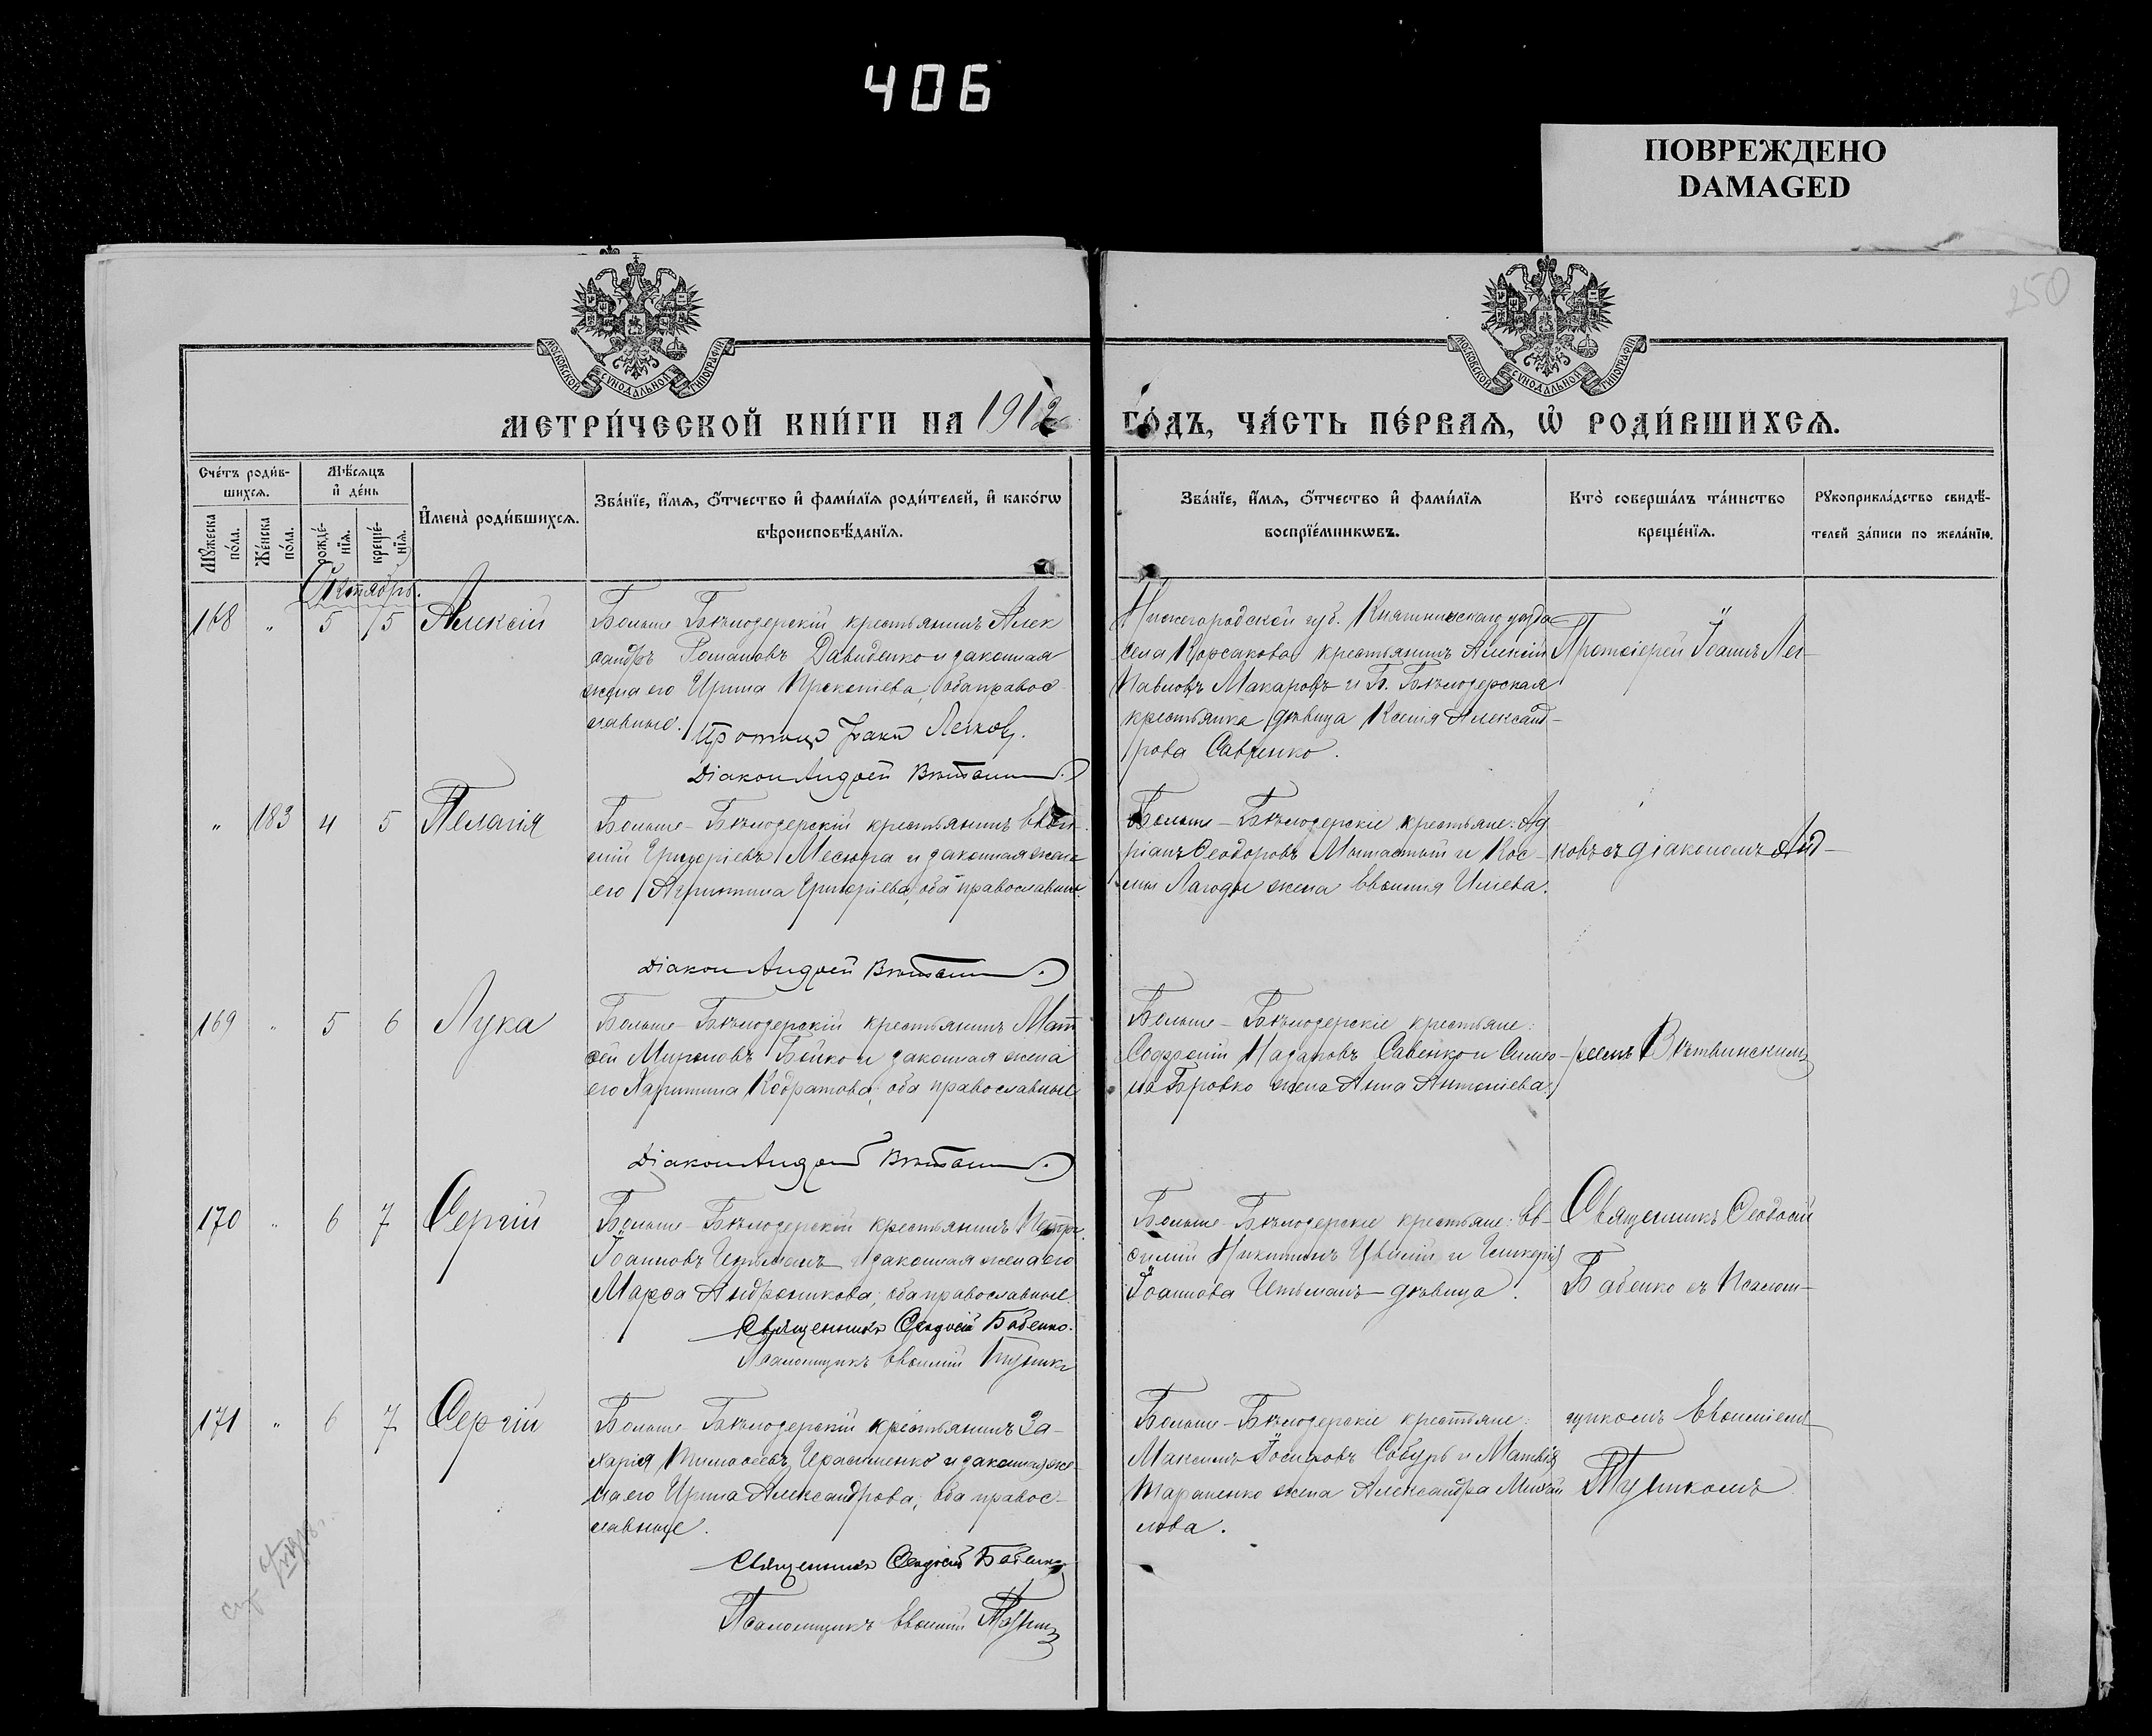 406
ПОВРЕЖДЕНО
DAMAGED
250
МОСКОВСКОЙ СѴНОДАЛЬНОЙ ТИПОГРАФІИ
МОСКОВСКОЙ СѴНОДАЛЬНОЙ ТИПОГРАФІИ
МЕТРИ́ЧЕСКОЙ КНИ́ГИ НА 1912 ГО́ДЪ, ЧА́СТЬ ПЕ́РВАѦ, Ѡ҆ РОДИ́ВШИХСѦ.
Сче́тъ роди́в-
шихсѧ.
Мѣ́сѧцъ
и҆ де́нь
Мꙋ́жеска
по́ла.
Же́нска
по́ла.
рожде́-
нїѧ.
креще́-
нїѧ.
И҆мена̀ роди́вшихсѧ.
Зва́нїе, и҆́мѧ, ѻ҆́тчество и҆ фами́лїѧ роди́телей, и҆ како́гѡ
вѣроисповѣ́данїѧ.
Зва́нїе, и҆́мѧ, ѻ҆́тчество и҆ фами́лїѧ
воспрїе́мникѡвъ.
Кто̀ соверша́лъ та́инство
креще́нїѧ.
Рꙋкоприкла́дство свидѣ́-
телей за́писи по жела́нїю.
Октябрь.
168 " 5 5 Алексій
Больше-Бѣлозерскій крестьянинъ Алек
сандръ Романовъ Давиденко и законная
жена его Ирина Прокопіева, оба правос
славные.
Діаконъ Андрей
Нижегородской губ. Княгининскаго уѣзда
села Корсакова крестьянинъ Алексій
Павловъ Макаровъ и Б. Бѣлозерская
крестьянка дѣвица Ксенія Александ-
рова Савченко.
Протоіерей Іоаннъ Лег-
" 183 4 5 Пелагія
Больше-Бѣлозерскій крестьянинъ
Григоріевъ Месюра и законная жена
его Харитина Григоріева, оба православные.
Діаконъ Андрей
Больше-Бѣлозерскіе крестьяне: Ад
ріанъ Ѳеодоровъ и Кос-
мы Лагоды жена Евфимія Иліева.
ковъ съ діакономъ Анд-
169 " 5 6 Лука
Больше-Бѣлозерскій крестьянинъ Мат
ѳей Мироновъ Бойко и законная жена
его Харитина Кодратова; оба православные
Діаконъ Андрей
Больше-Бѣлозерскіе крестьяне:
Созонтій Назаровъ Савенко и Симо-
на Бровко жена Анна Антоніева.
реемъ Вѣтвинскимъ
170 " 6 7 Сергій
Больше-Бѣлозерскій крестьянинъ Петръ
Іоанновъ и законная жена его
Марѳа Андроникова; оба православные.
Священникъ Ѳеодосій Бабенко.
Псаломщикъ Евфимій
Больше-Бѣлозерскіе крестьяне: Ев-
Никитинъ и Гликерія
Іоаннова дѣвица.
Священникъ Ѳеодосій
Бабенко съ псалом-
171 " 6 7 Сергій
Больше-Бѣлозерскій крестьянинъ За-
харія Тимоѳеевъ Герасименко и законная же-
на его Ирина Александрова; оба правос-
славные.
Священникъ Ѳеодосій Бабенко
Псаломщикъ Евфимій
Больше-Бѣлозерскіе крестьяне:
Максимъ Іосифовъ Собурь и Матвія
Тараненко жена Александра Михай
лова.
щикомъ Евфиміемъ